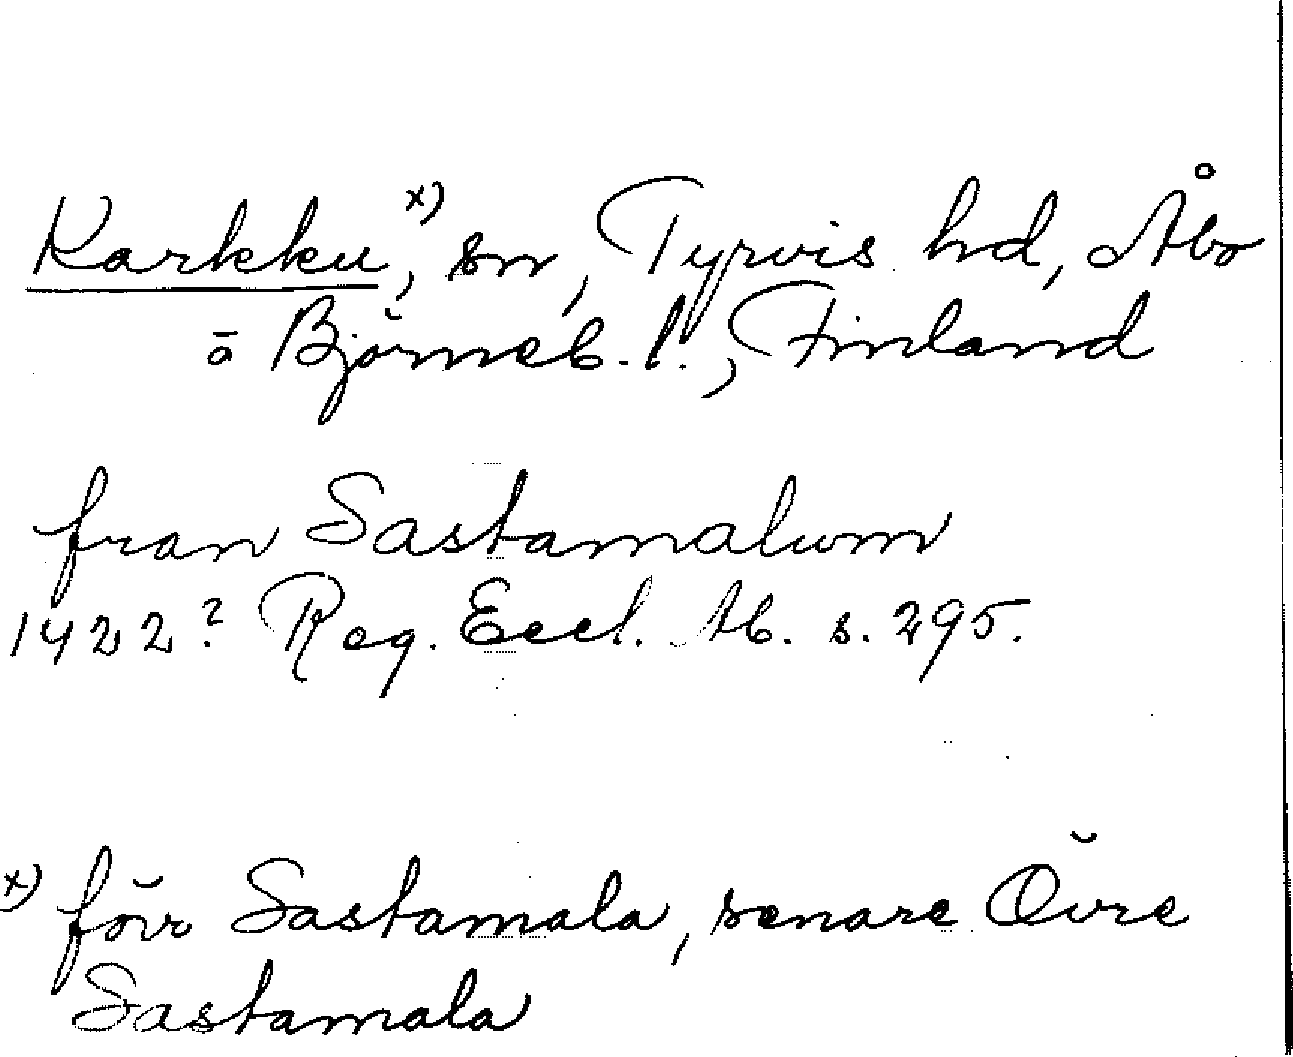 Karkku,x) sn, Tyrvis hd, Åbo
o Björneb. l., Finland
fran Sastamalum
1422? Reg. Eccl. Ab. s. 295.
x) förr Sastamala, senare Övre
Sastamala